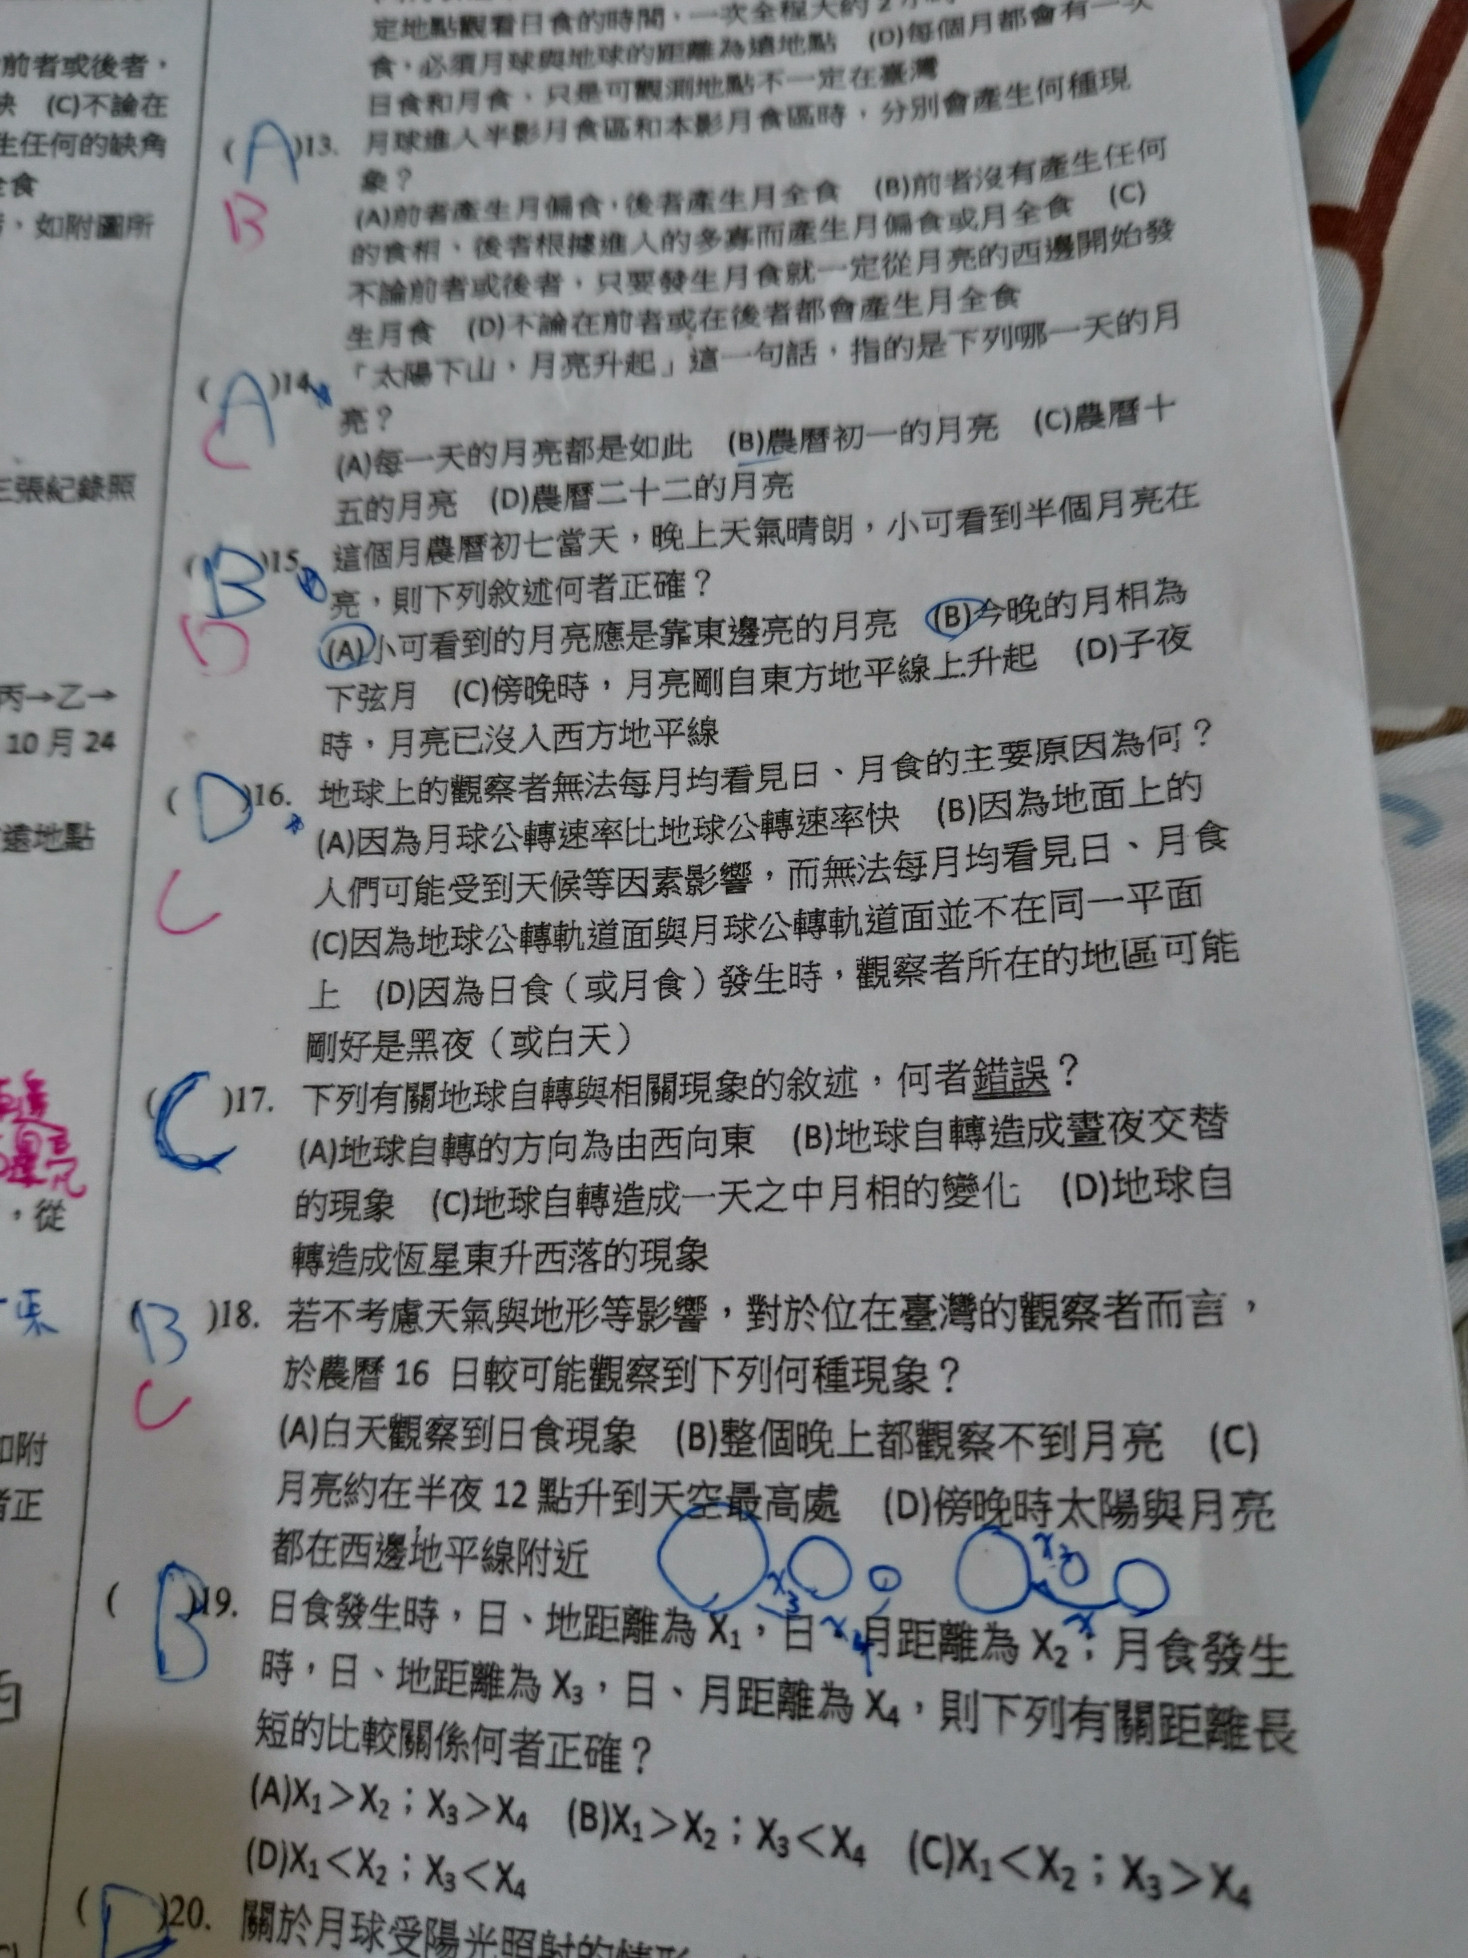 前者或後者，
缺 (C)不論在
生任何的缺角
全食
，如附圖所
三張紀錄照
丙→乙→
10月24
遠地點
，從
如附
者正
定地點觀看日食的時間，一次全程大約2
食，必須月球與地球的距離為遠地點 (D)每個月都會有一次
日食和月食，只是可觀測地點不一定在臺灣
(A)13. 月球進入半影月食區和本影月食區時，分別會產生何種現
B
象？
(A)前者產生月偏食，後者產生月全食 (B)前者沒有產生任何
的食相、後者根據進入的多寡而產生月偏食或月全食 (C)
不論前者或後者，只要發生月食就一定從月亮的西邊開始發
生月食 (D)不論在前者或在後者都會產生月全食
(A)14. 「太陽下山，月亮升起」這一句話，指的是下列哪一天的月
C
亮？
(A)每一天的月亮都是如此 (B)農曆初一的月亮 (C)農曆十
五的月亮 (D)農曆二十二的月亮
(B)15. 這個月農曆初七當天，晚上天氣晴朗，小可看到半個月亮在
D
亮，則下列敘述何者正確？
(A)小可看到的月亮應是靠東邊亮的月亮 (B)今晚的月相為
下弦月 (C)傍晚時，月亮剛自東方地平線上升起 (D)子夜
時，月亮已沒入西方地平線
(D)16. 地球上的觀察者無法每月均看見日、月食的主要原因為何？
C
(A)因為月球公轉速率比地球公轉速率快 (B)因為地面上的
人們可能受到天候等因素影響，而無法每月均看見日、月食
(C)因為地球公轉軌道面與月球公轉軌道面並不在同一平面
上 (D)因為日食（或月食）發生時，觀察者所在的地區可能
剛好是黑夜（或白天）
(C)17. 下列有關地球自轉與相關現象的敘述，何者錯誤？
(A)地球自轉的方向為由西向東 (B)地球自轉造成晝夜交替
的現象 (C)地球自轉造成一天之中月相的變化 (D)地球自
轉造成恆星東升西落的現象
(B)18. 若不考慮天氣與地形等影響，對於位在臺灣的觀察者而言，
C
於農曆16 日較可能觀察到下列何種現象？
(A)白天觀察到日食現象 (B)整個晚上都觀察不到月亮 (C)
月亮約在半夜12點升到天空最高處 (D)傍晚時太陽與月亮
都在西邊地平線附近
(B)19. 日食發生時，日、地距離為X₁，日、月距離為X₂；月食發生
時，日、地距離為X₃，日、月距離為X₄，則下列有關距離長
短的比較關係何者正確？
(A)X₁＞X₂；X₃＞X₄ (B)X₁＞X₂；X₃＜X₄ (C)X₁＜X₂；X₃＞X₄
(D)X₁＜X₂；X₃＜X₄
(D)20. 關於月球受陽光照射的情形